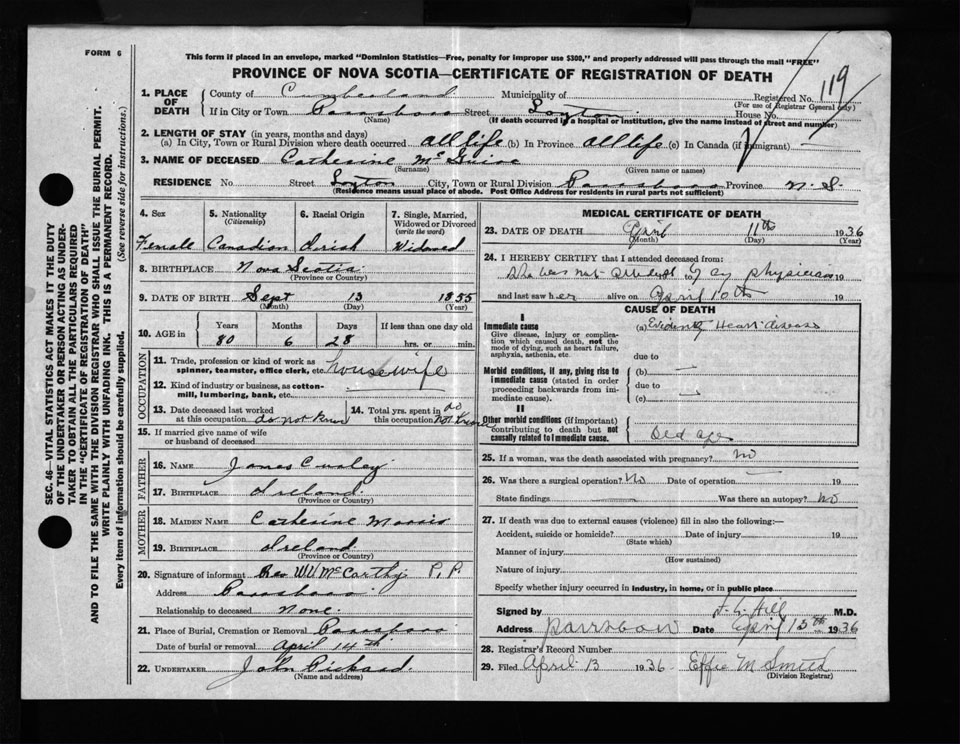 FORM 6
This form if placed in an envelope, marked "Dominion Statistics—Free, penalty for improper use $300," and properly addressed will pass through the mail "FREE"
PROVINCE OF NOVA SCOTIA—CERTIFICATE OF REGISTRATION OF DEATH
119
1. PLACE OF DEATH County of Cumberland Municipality of Registered No.
(For use of Registrar General only)
If in City or Town Parrsboro Street House No.
(Name) (If death occurred in a hospital or institution, give the name instead of street and number)
2. LENGTH OF STAY (in years, months and days)
(a) In City, Town or Rural Division where death occurred all life (b) In Province all life (c) In Canada (if immigrant)
3. NAME OF DECEASED Catherine Mc Guire
(Surname) (Given name or names)
RESIDENCE No. Street City, Town or Rural Division Parrsboro Province N.S.
(Residence means usual place of abode. Post Office Address for residents in rural parts not sufficient)
4. Sex Female
5. Nationality (Citizenship) Canadian
6. Racial Origin Irish
7. Single, Married, Widowed or Divorced (write the word) Widowed
8. BIRTHPLACE Nova Scotia
(Province or Country)
9. DATE OF BIRTH Sept 13 1855
(Month) (Day) (Year)
10. AGE in Years Months Days If less than one day old
80 6 28 hrs. or min.
OCCUPATION
11. Trade, profession or kind of work as spinner, teamster, office clerk, etc. Housewife
12. Kind of industry or business, as cotton-mill, lumbering, bank, etc.
13. Date deceased last worked at this occupation do not know
14. Total yrs. spent in this occupation do not know
15. If married give name of wife or husband of deceased
FATHER
16. NAME James
17. BIRTHPLACE Ireland
(Province or Country)
MOTHER
18. MAIDEN NAME Catherine Morris
19. BIRTHPLACE Ireland
(Province or Country)
20. Signature of informant Rev W McCarthy P.P.
Address Parrsboro
Relationship to deceased None.
21. Place of Burial, Cremation or Removal Parrsboro
Date of burial or removal April 14th
22. UNDERTAKER John Pickard
(Name and address)
MEDICAL CERTIFICATE OF DEATH
23. DATE OF DEATH April 11th 1936
(Month) (Day) (Year)
24. I HEREBY CERTIFY that I attended deceased from:
She was not attended by any physician 19
and last saw her alive on April 10th 19
CAUSE OF DEATH
I
Immediate cause
Give disease, injury or complication which caused death, not the mode of dying, such as heart failure, asphyxia, asthenia, etc.
(a) Evidently Heart disease
due to
Morbid conditions, if any, giving rise to immediate cause (stated in order proceeding backwards from immediate cause).
(b) —
due to
(c) —
II
Other morbid conditions (if important) contributing to death but not causally related to immediate cause.
Old age
25. If a woman, was the death associated with pregnancy? No
26. Was there a surgical operation? No Date of operation 19
State findings Was there an autopsy? No
27. If death was due to external causes (violence) fill in also the following:—
Accident, suicide or homicide? Date of injury 19
(State which)
Manner of injury
(How sustained)
Nature of injury
Specify whether injury occurred in industry, in home, or in public place
Signed by Hill M.D.
Address Parrsboro Date April 13th 1936
28. Registrar's Record Number
29. Filed April 13 1936 Effie M Smith
(Division Registrar)
SEC. 46—VITAL STATISTICS ACT MAKES IT THE DUTY
OF THE UNDERTAKER OR PERSON ACTING AS UNDER-
TAKER TO OBTAIN ALL THE PARTICULARS REQUIRED
IN THE "CERTIFICATE OF REGISTRATION OF DEATH"
AND TO FILE THE SAME WITH THE DIVISION REGISTRAR WHO SHALL ISSUE THE BURIAL PERMIT.
WRITE PLAINLY WITH UNFADING INK. THIS IS A PERMANENT RECORD.
Every item of information should be carefully supplied. (See reverse side for instructions.)